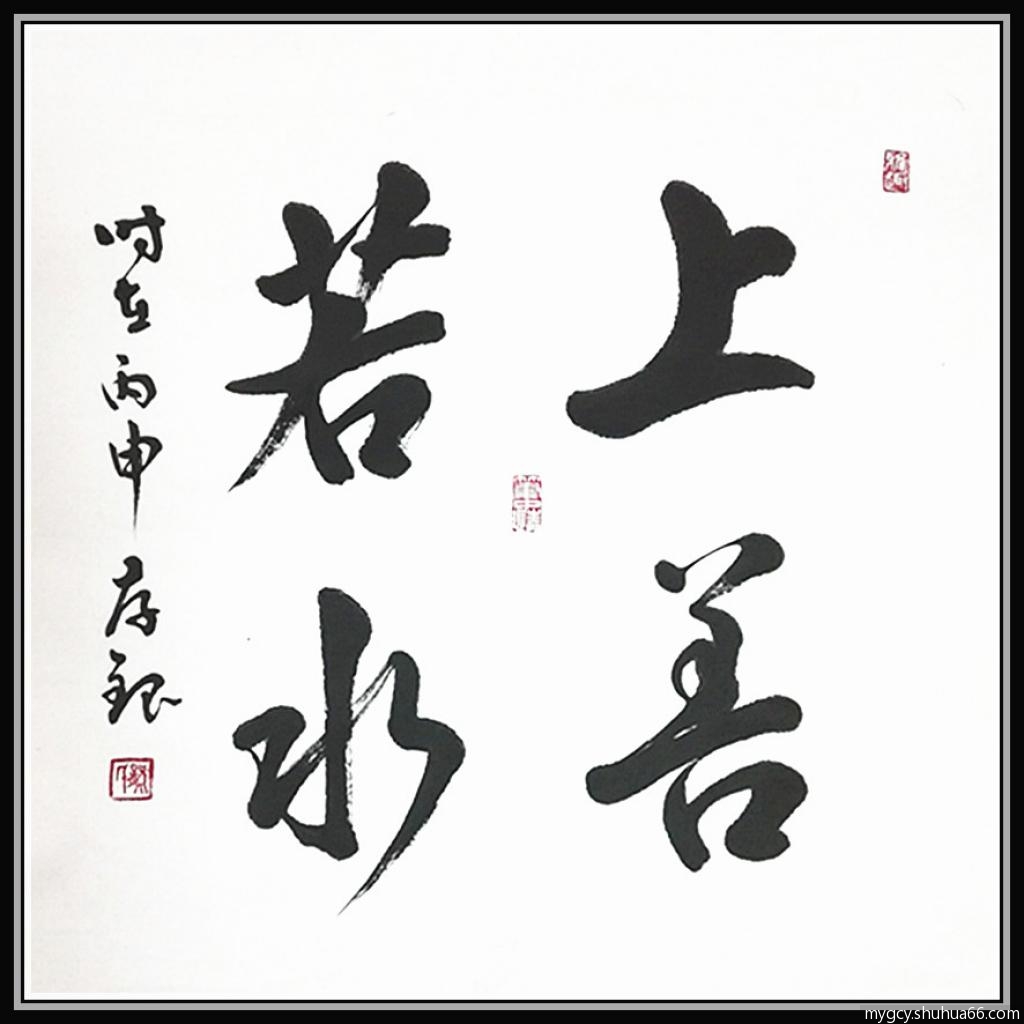 上善
若水
时在丙申存银
mygcy.shuhua66.com